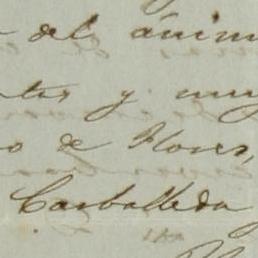 del ánim
y muy
o de Flores,
Carballeda